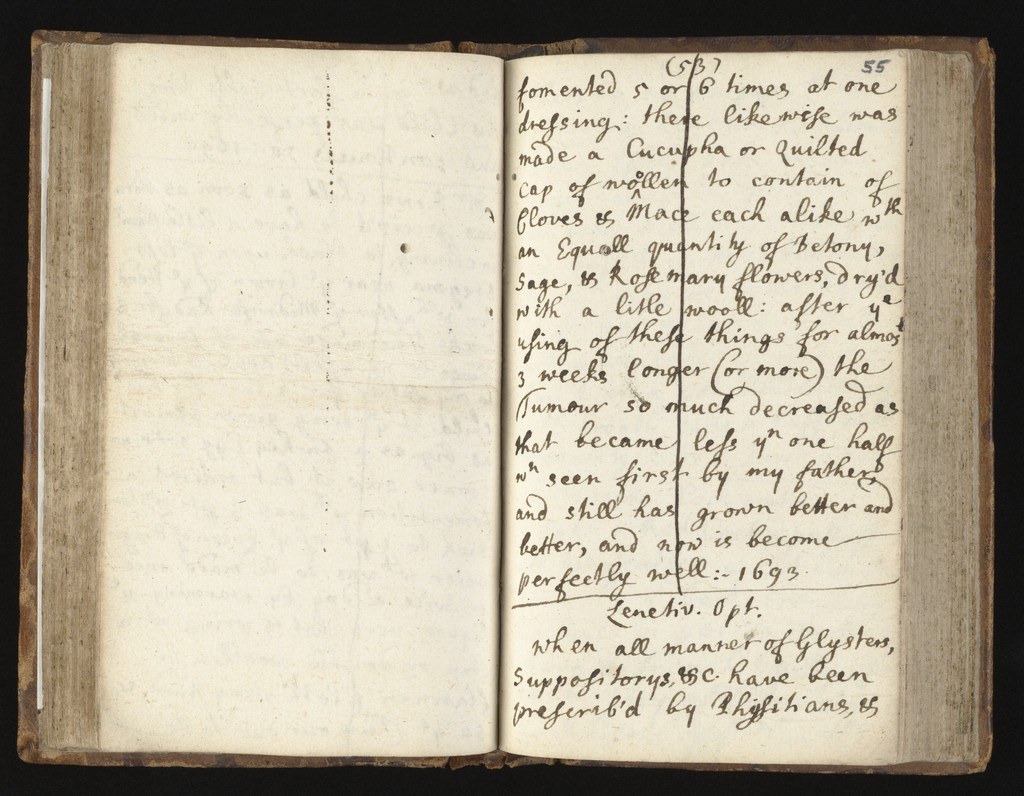 (53)
55
fomented 5 or 6 times at one
dressing: there likewise was
made a Cucupha or Quilted
Cap of wollen to contain of
Cloves & Mace each alike wth
an Equall quantity of Betony,
Sage, & Rosemary flowers, dry'd
with a litle wooll: after ye
using of these things for almost
3 weeks longer (or more) the
Tumour so much decreased as
that became less yn one half
wn seen first by my father,
and still has grown better and
better, and now is become
perfectly well:- 1693
Lenetiv. Opt.
when all manner of Glysters,
Suppositorys, &c. have been
prescrib'd by Physitians, &